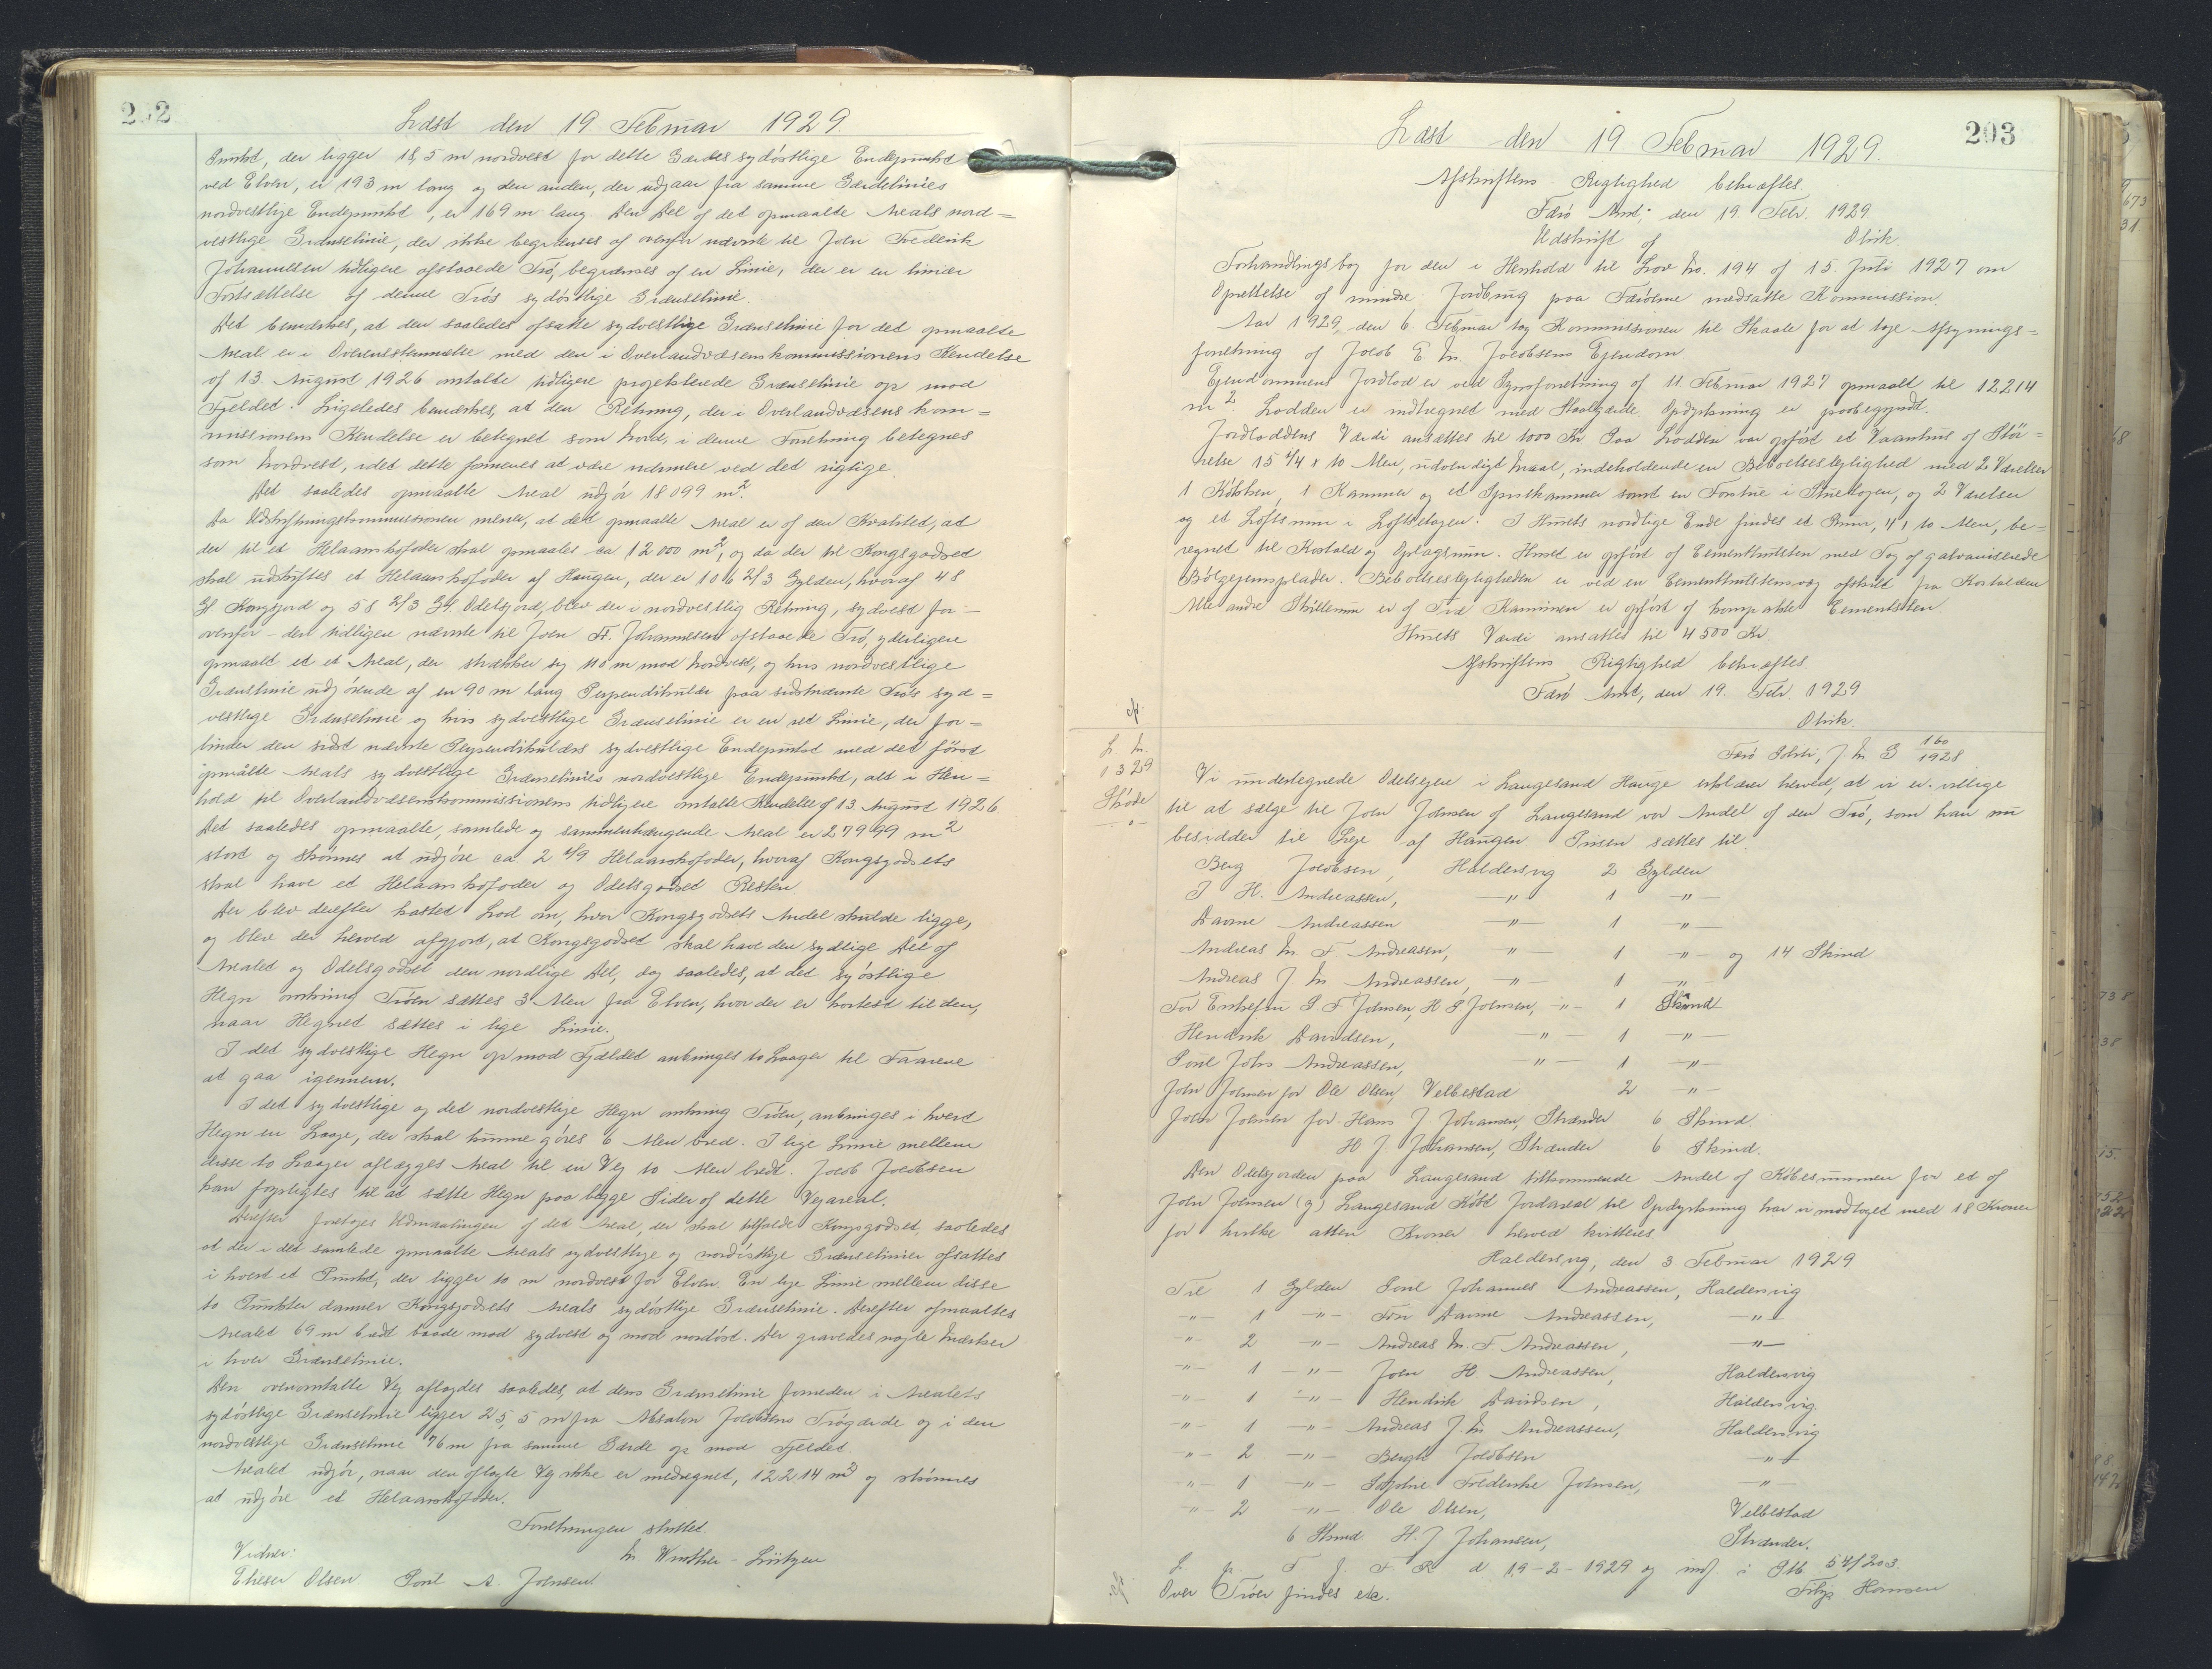 202
Læst den 19 Februar 1929.
Punkt, der ligger 18,5 m nordvest for dette Gærdes sydöstlige Endepunkt
ved Elven, er 193 m lang og den anden, der udgaar fra samme Gærdelinies
nordvestlige Endepunkt, er 169 m lang. Den Del af det opmaalte Areals nord=
vestlige Grænselinie, der ikke begrænses af ovenfor nævnte til Joen Frederik
Johannesen tidligere afstaaede Trö, begrænses af en Linie, der er en lineær
Fortsættelse af denne Trös sydöstlige Grænselinie.
Det bemærkes, at den saaledes afsatte sydvestlige Grænselinie for det opmaalte
Areal er i Overensstemmelse med den i Overlandvæsenskommissionens Kendelse
af 13. August 1926 omtalte tidligere projekterede Grænselinie op mod
Fjeldet. Ligeledes bemærkes, at den Retning, der i Overlandvæsenskom=
missionens Kendelse er betegnet som Nord, i denne Forretning betegnes
som Nordvest, idet dette formenes at være nærmere ved det rigtige.
Det saaledes opmaalte Areal udgör 18099 m².
Da Udskiftningskommissionen mener, at det opmaalte Areal er af den Kvalitet, at
der til et Helaarskofoder skal opmaales ca 12000 m², og da der til Kongsgodset
skal udskiftes et Helaarskofoder af Haugen, der er 106 2/3 Gylden, hvoraf 48
Gl Kongsjord og 58 2/3 Gl. Odelsjord, blev der i nordvestlig Retning, sydvest for -
ovenfor - den tidligere nævnte til Joen Fr. Johannesen afstaaede Trö, yderligere
opmaalt et Areal, der strækker sig 110 m mod Nordvest, og hvis nordvestlige
Grænslinie udgörende af en 90 m lang Perpendikulær paa sidstnævnte Trös syd=
vestlige Grænselinie og hvis sydvestlige Grænselinie er en ret Linie, der for=
binder den sidst nævnte Perpendikulærs sydvestlige Endepunkt med det först
opmålte Areals sydvestlige Grænselinies nordvestlige Endepunkt, alt i Hen=
hold til Overlandvæsenskommissionens tidligere omtalte Kendelse af 13 August 1926.
Det saaledes opmaalte, samlede og sammenhængende Areal er 27999 m²
stort og skönnes at udgöre ca 2 2/9 Helaarskofoder, hvoraf Kongsgodsets
skal have et Helaarskofoder og Odelsgodset Resten.
Der blev derefter kastet Lod om, hvor Kongsgodsets Andel skulde ligge,
og blev det herved afgjort, at Kongsgodset skal have den sydlige Del af
Arealet og Odelsgodset den nordlige Del, dog saaledes, at det sydöstlige
Hegn omkring Tröen sættes 3 Alen fra Elven, hvor der er kortest til den,
naar Hegnet sættes i lige Linie.
I det sydvestlige Hegn op mod Fjældet anbringes to Laager til Faarene
at gaa igennem.
I det sydvestlige og det nordvestlige Hegn omkring Tröen, anbringes i hvert
Hegn en Laage, der skal kunne göres 6 Alen bred. I lige Linie mellem
disse to Laager aflægges Areal til en Vej to Alen bredt. Jacob Jacobsen
kan forpligtes til at sætte Hegn paa begge Sider af dette Vejareal.
Derefter foretoges Udmaalingen af det Areal, der skal tilfalde Kongsgodset, saaledes
at der i det samlede opmaalte Areals sydvestlige og nordöstlige Grænselinier afsattes
i hvert et Punkt, der ligger to m nordvest for Elven. En lige Linie mellem disse
to Punkter danner Kongsgodsets Areals sydöstlige Grænselinie. Derefter opmaaltes
Arealet 69 m bredt baade mod sydvest og mod nordöst. Der gravedes nogle Mærker
i hver Grænselinie.
Den ovenomtalte Vej aflagdes saaledes, at dens Grænselinie forneden i Arealets
sydöstlige Grænselinie ligger 25,5 m fra Absalon Jacobsens Trögærde og i den
nordvestlige Grænselinie 76 m fra samme Gærde op mod Fjeldet.
Arealet udgör, naar den aflagte Vej ikke er medregnet, 12214 m² og skönnes
at udgöre et Helaarskofoder.
Forretningen sluttet.
M Winther - Lützen
Vidner:
Elieser Olsen Poul A. Joensen.
203
Læst den 19. Februar 1929.
Afskriftens Rigtighed bekræftes.
Færö Amt, den 19. Febr. 1929
Olrik.
Udskrift af
Forhandlingsbog for den i Henhold til Lov No. 194 af 15. Juli 1927 om
Oprettelse af mindre Jordbrug paa Færöerne nedsatte Kommission.
Aar 1929, den 6. Februar tog Kommissionen til Skaale for at tage Afsynings=
forretning af Jacob E. M. Jacobsens Ejendom.
Ejendommens Jordlod er ved Synsforretning af 11 Februar 1927 opmaalt til 12214
m². Lodden er indhegnet med Staalgærde. Opdyrkning er paabegyndt.
Jordloddens Værdi ansættes til 1000 Kr. Paa Lodden var opfört et Vaanhus af Stör=
relse 15 1/4 x 10 Alen, udvendigt Maal, indeholdende en Beboelseslejlighed med 2 Værelser
1 Kökken, 1 Kammer og et Spisekammer samt en Forstue i Stueetagen, og 2 Værelser
og et Loftsrum i Loftsetagen. I Husets nordlige Ende findes et Rum, 4 x 10 Alen, be=
regnet til Kostald og Oplagsrum. Huset er opfört af Cementhulsten med Tag af galvaniserede
Bölgejernsplader. Beboelseslejligheden er ved en Cementhulstensvæg afskilt fra Kostalden
Alle andre Skillerum er af Træ. Kaminen er opfört af kompakte Cementsten.
Husets Værdi ansættes til 4500 Kr.
Afskriftens Rigtighed bekræftes.
Færö Amt, den 19. Febr. 1929
Olrik.
L. N.
1329
Sköde
Færö J. N G 160/1928
Vi undertegnede Odelsejere i Langesand Hauge erklærer herved, at vi er villige
til at sælge til Joen Joensen af Langesand vor Andel af den Trö, som han nu
besidder til Leje af Haugen. Prisen sættes til
Berg Jacobsen, Haldersvig 2 Gylden
J H. Andreassen, -"- 1 -"-
Davine Andreassen -"- 1 -"-
Andreas M. F. Andreasen, -"- 1 -"- og 14 Skind
Andreas J. M Andreassen, -"- 1 -"-
For Enkefru S. F Joensen, H G Joensen, -"- 1 Skind
Hendrik Davidsen, -"- 1 -"-
Poul Johs Andreassen, -"- 1 -"-
Joen Joensen for Ole Olsen, Velbestad 2 -"-
Joen Joensen for Hans J. Johansen, Strænder 6 Skind.
H J Johansen, Strænder 6 Skind.
Den Odelsjorden paa Langesand tilkommende Andel af Köbesummen for et af
Joen Joensen (g) Langesand Köbt Jordareal til Opdyrkning har vi modtaget med 18 Kroner
for hvilke atten Kroner herved kvitteres.
Haldersvig, den 3. Februar 1929
Til 1 Gylden Poul Johannes Andreassen, Haldersvig
-"- 1 -"- Fru Davine Andreassen, -"-
-"- 2 -"- Andreas M. F. Andreassen, -"-
-"- 1 -"- Joen H Andreassen, Haldersvig
-"- 1 -"- Hendrik Davidsen, Haldersvig.
-"- 1 -"- Andreas J. M Andreassen, Haldersvig
-"- 2 -"- Jacobsen -"-
-"- 1 -"- Frederikke Joensen, -"-
-"- 2 -"- Ole Olsen, Velbestad
6 Skind H. J Johansen, Strænder.
L. p. F J. F R d 19-2-1929 og indf i Ptb 54/203.
Over Tröen findes etc. Filip Hansen